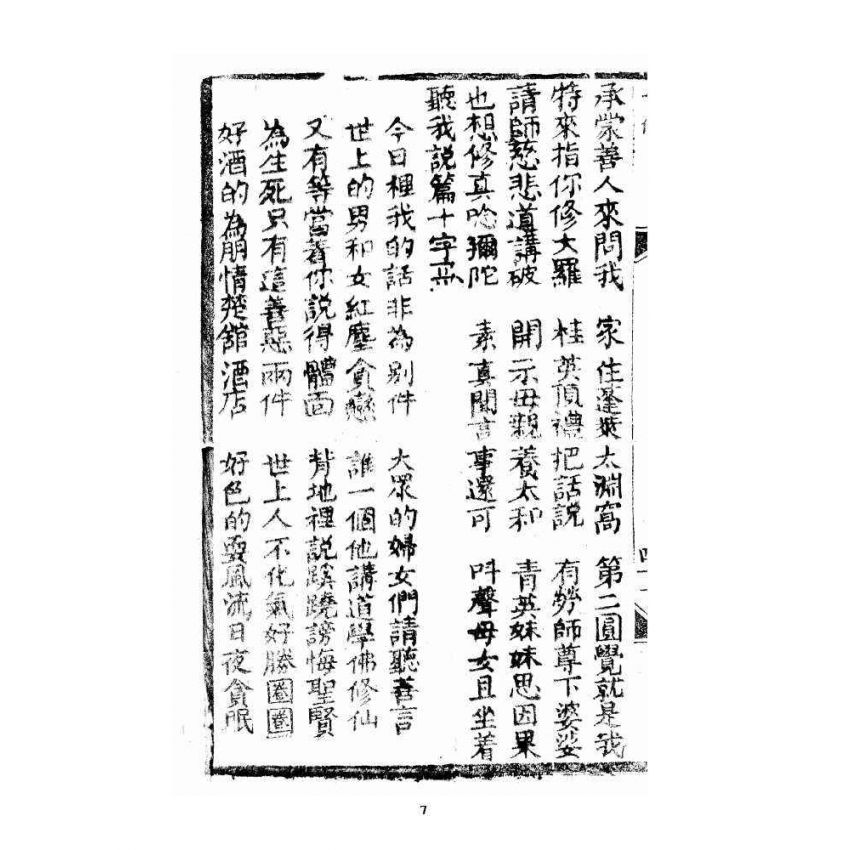 承蒙善人來問我　家住蓬萊太淵窩　第二圓覺就是我
特來指你修大羅　桂英頂禮把話說　有勞師尊下婆娑
請師慈悲道講破　開示母親養太和　青英妹妹思因果
也想修真唸彌陀　素真聞言事還可　呌聲母女且坐着
聽我說篇十字冊
今日裡我的話非為別件　大眾的婦女們請聽善言
世上的男和女紅塵貪戀　誰一個他講道學佛修仙
又有等當着你說得體面　背地裡說蹊蹺謗悔聖賢
為生死只有這善惡兩件　世上人不化氣好勝圈圈
好酒的為朋情楚舘酒店　好色的耍風流日夜貪眠
7